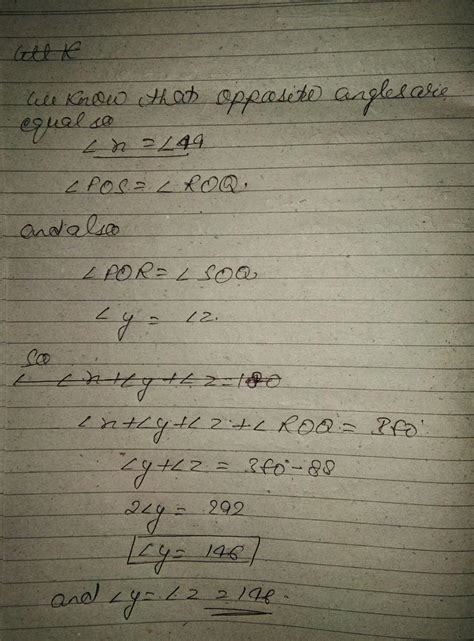 We know that opposite angles are
equal so
∠x = ∠44
∠POS = ∠ROQ.
and also
∠POR = ∠SOQ.
∠y = ∠z.
so
∠ ∠x+∠y+∠z=180
∠x+∠y+∠z+∠ROQ = 360
∠y+∠z = 360-88
2∠y = 292
∠y = 146
and ∠y = ∠z = 146.